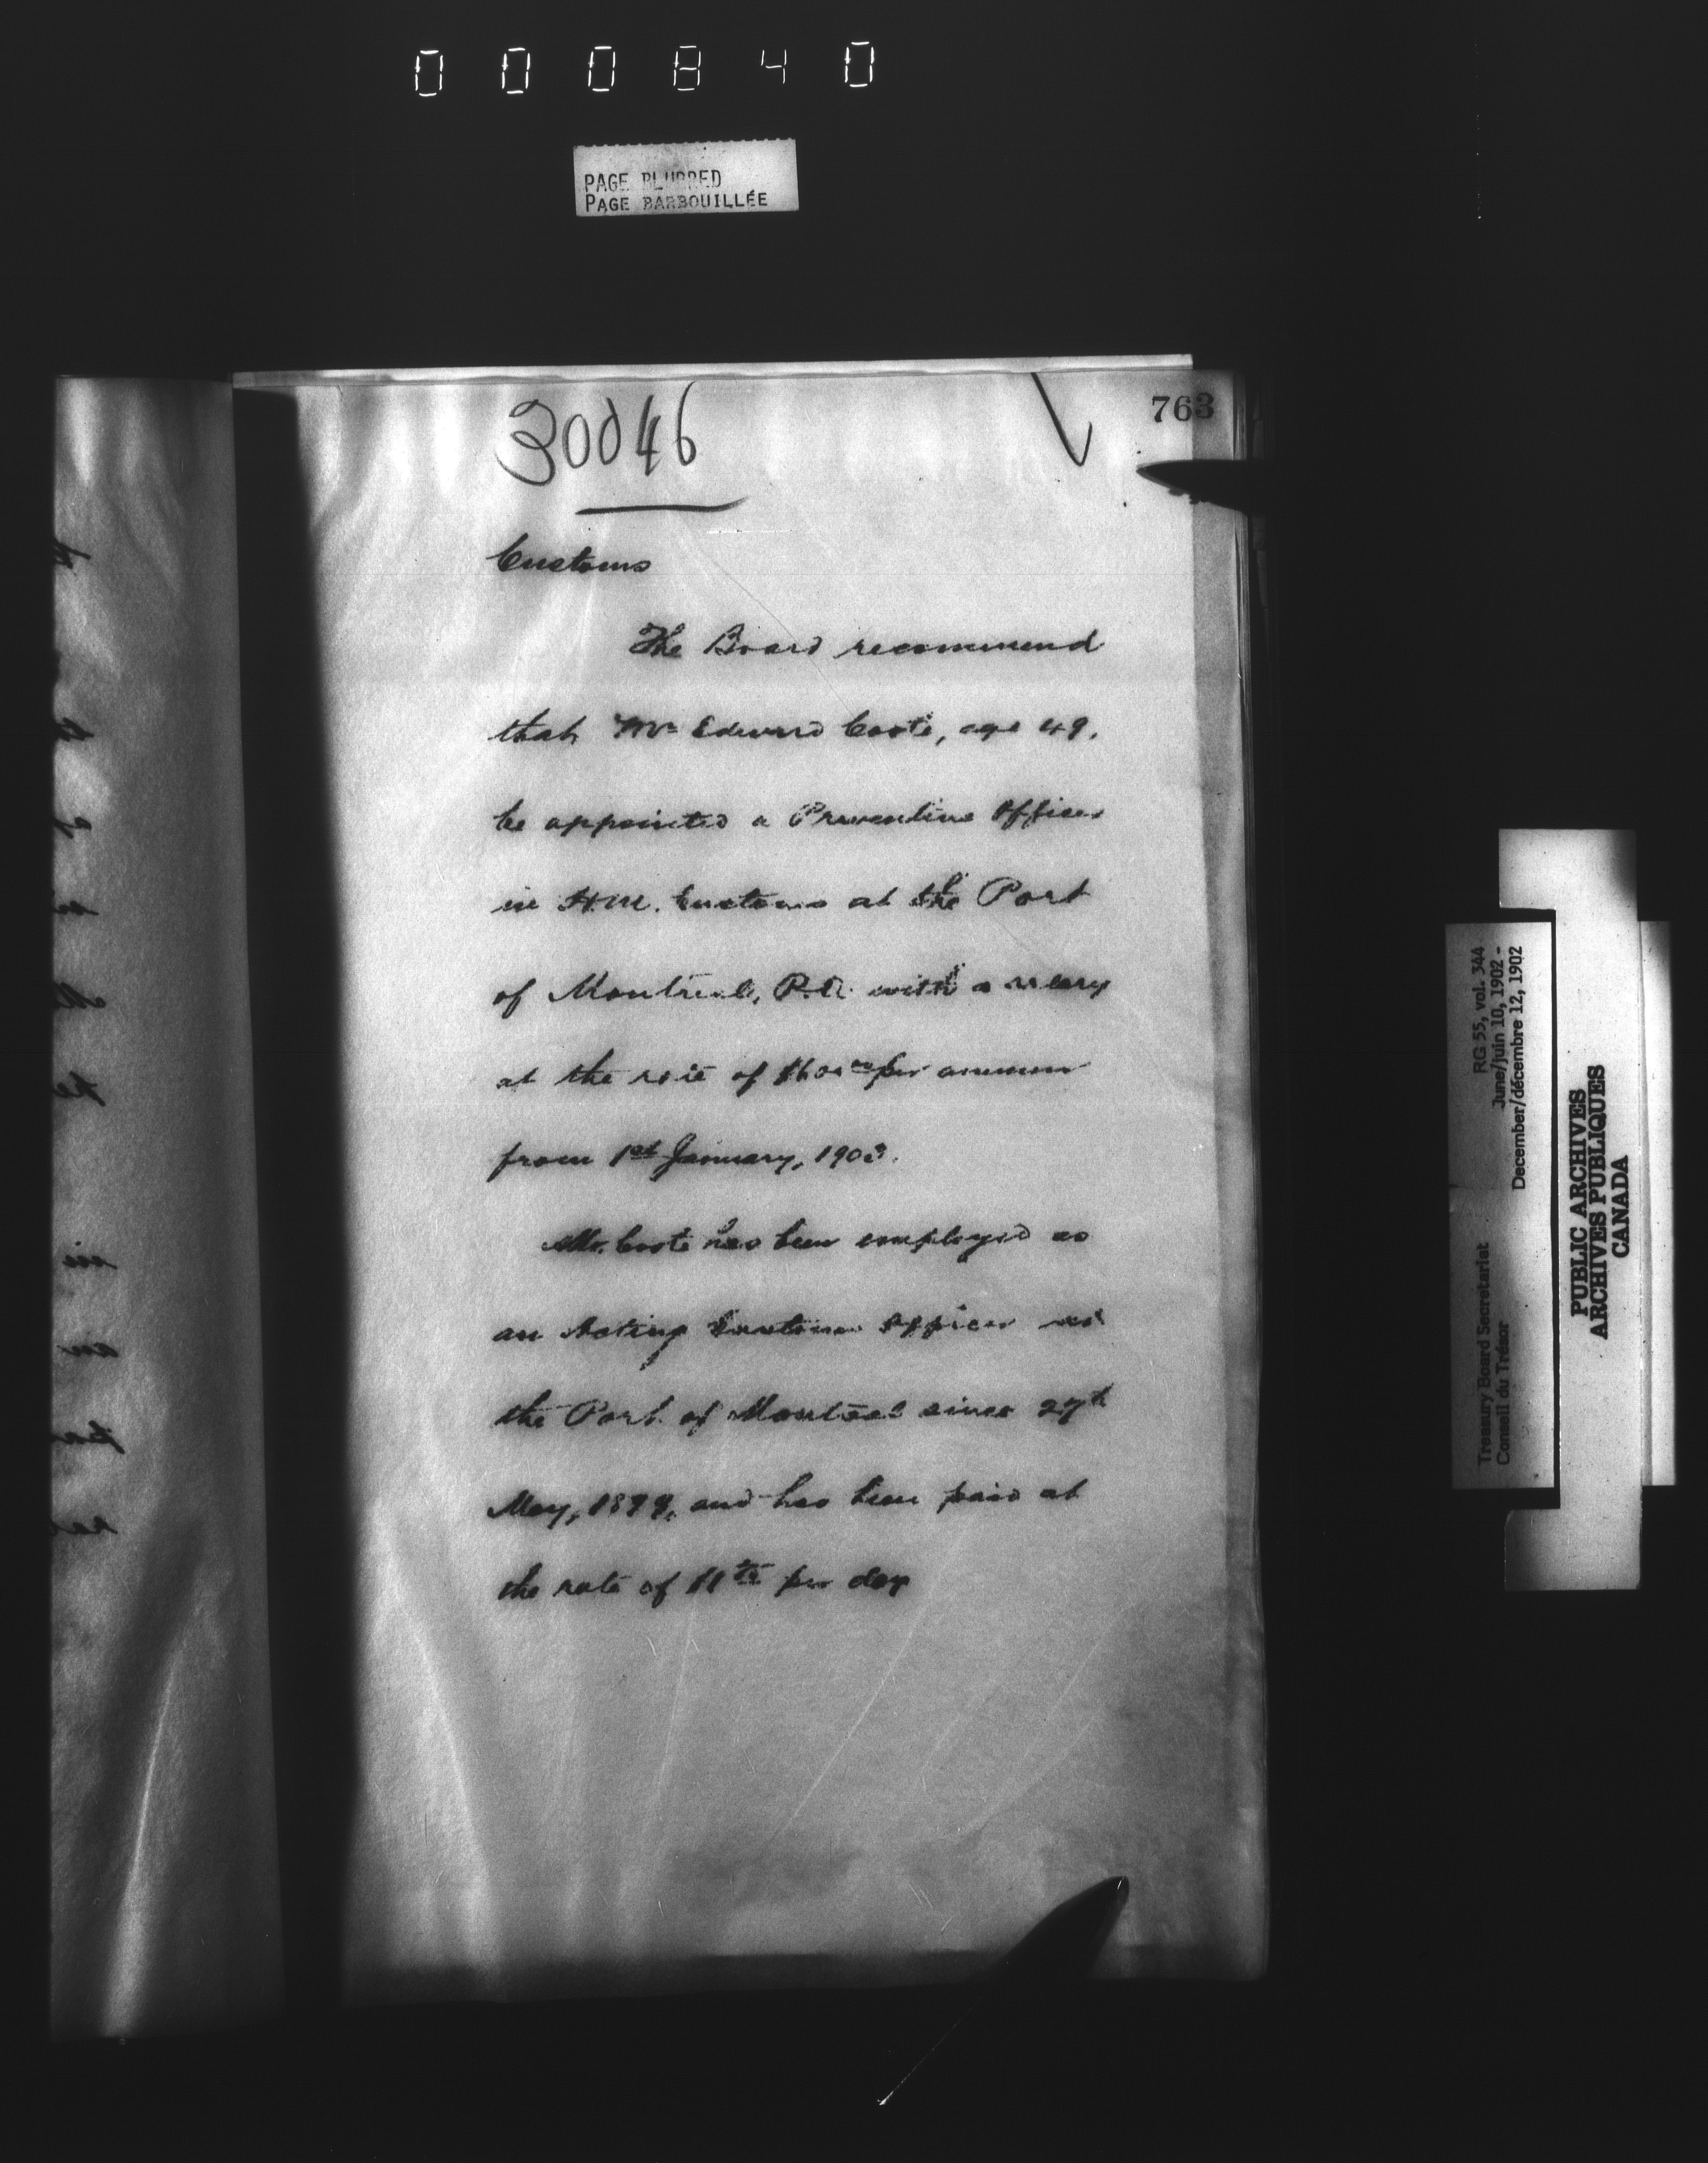 000840
PAGE BLURRED
PAGE BARBOUILLÉE
763
30046
Customs
The Board recommend
that Mr Edward Coote, age 49,
be appointed a Preventive Officer
in H.M. Customs at the Port
of Montreal, P.Q. with a salary
at the rate of $600 00 per annum
from 1st January, 1903.
Mr. Coote has been employed as
an Acting Customs Officer at
the Port of Montreal since 27th
May, 1899, and has been paid at
the rate of per day
RG 55, vol. 344
June/juin 10, 1902 -
December/décembre 12, 1902
Treasury Board Secretariat
Conseil du Trésor
PUBLIC ARCHIVES
ARCHIVES PUBLIQUES
CANADA